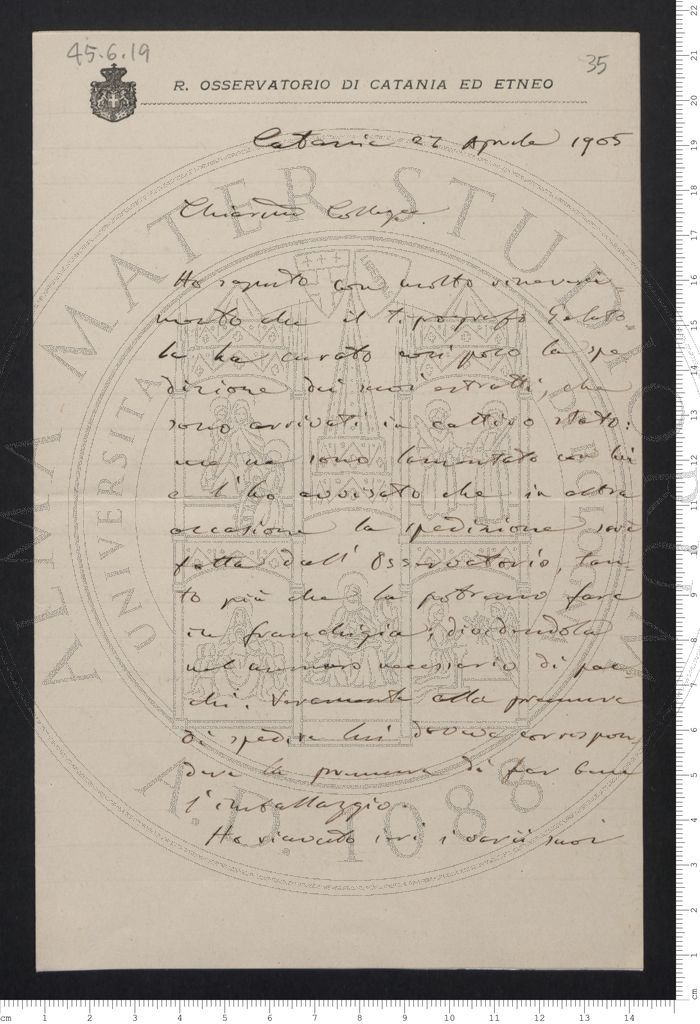 45.6.19
35
R. OSSERVATORIO DI CATANIA ED ETNEO
Catania 27 Aprile 1905
Chiarmo Collega
Ho saputo con molto rincresci-
mento che il tipografo Galato-
la ha curato così poco la spe
dizione dei suoi estratti, che
sono arrivati in cattivo stato:
me ne sono lamentato con lui
e l'ho avvisato che in altra
occasione la spedizione sarà
fatta dall'Osservatorio, tan-
to più che la potremo fare
in franchigia, dividendola
nel numero necessario di pac-
chi. Veramente alla premura
di spedire lui doveva corrispon-
dere la premura di far bene
l'imballaggio.
Ho ricevuto ieri i varii suoi
ALMA MATER STUDIORUM
UNIVERSITA
A.D. 1088